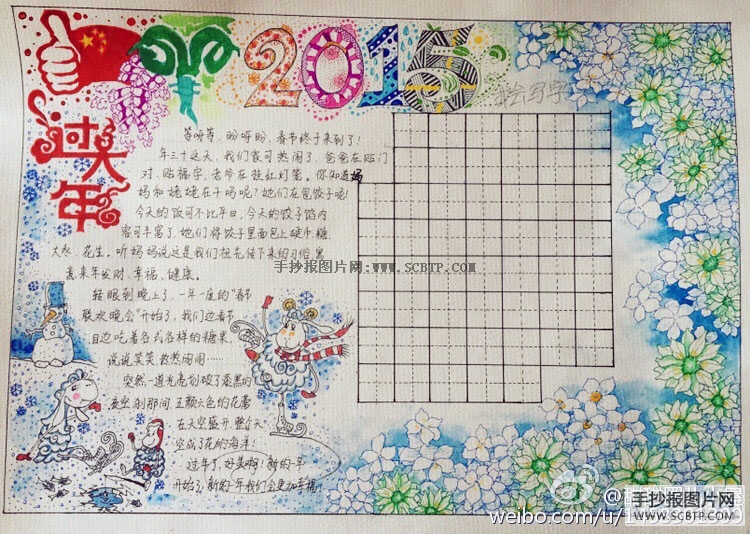 2015
过大年
等呀等，盼呀盼，春节终于来到了！
年三十这天，我们家可热闹了，爸爸在贴门
对、贴福字，老爷在挂红灯笼。你知道妈
妈和姥姥在干吗呢？她们在包饺子呢！
今天的饭可不比平日，今天的饺子馅内
容可丰富了，她们将饺子里面包上硬币、糖、
大枣、花生。听妈妈说这是我们祖先传下来的习俗，寓
意来年发财、幸福、健康。
转眼到晚上了，一年一度的“春节
联欢晚会”开始了，我们边看节
目边吃着各式各样的糖果，
说说笑笑，热热闹闹……
突然一道光亮划破了漆黑的
夜空，刹那间，五颜六色的花蕾
在天空盛开，整个天
空成了花的海洋！
过年了，好美啊！新的一年
开始了，新的一年我们会更加幸福！
手抄报图片网:www.SCBTP.com
绘写字
手抄报图片网
WWW.SCBTP.COM
@
weibo.com/u/